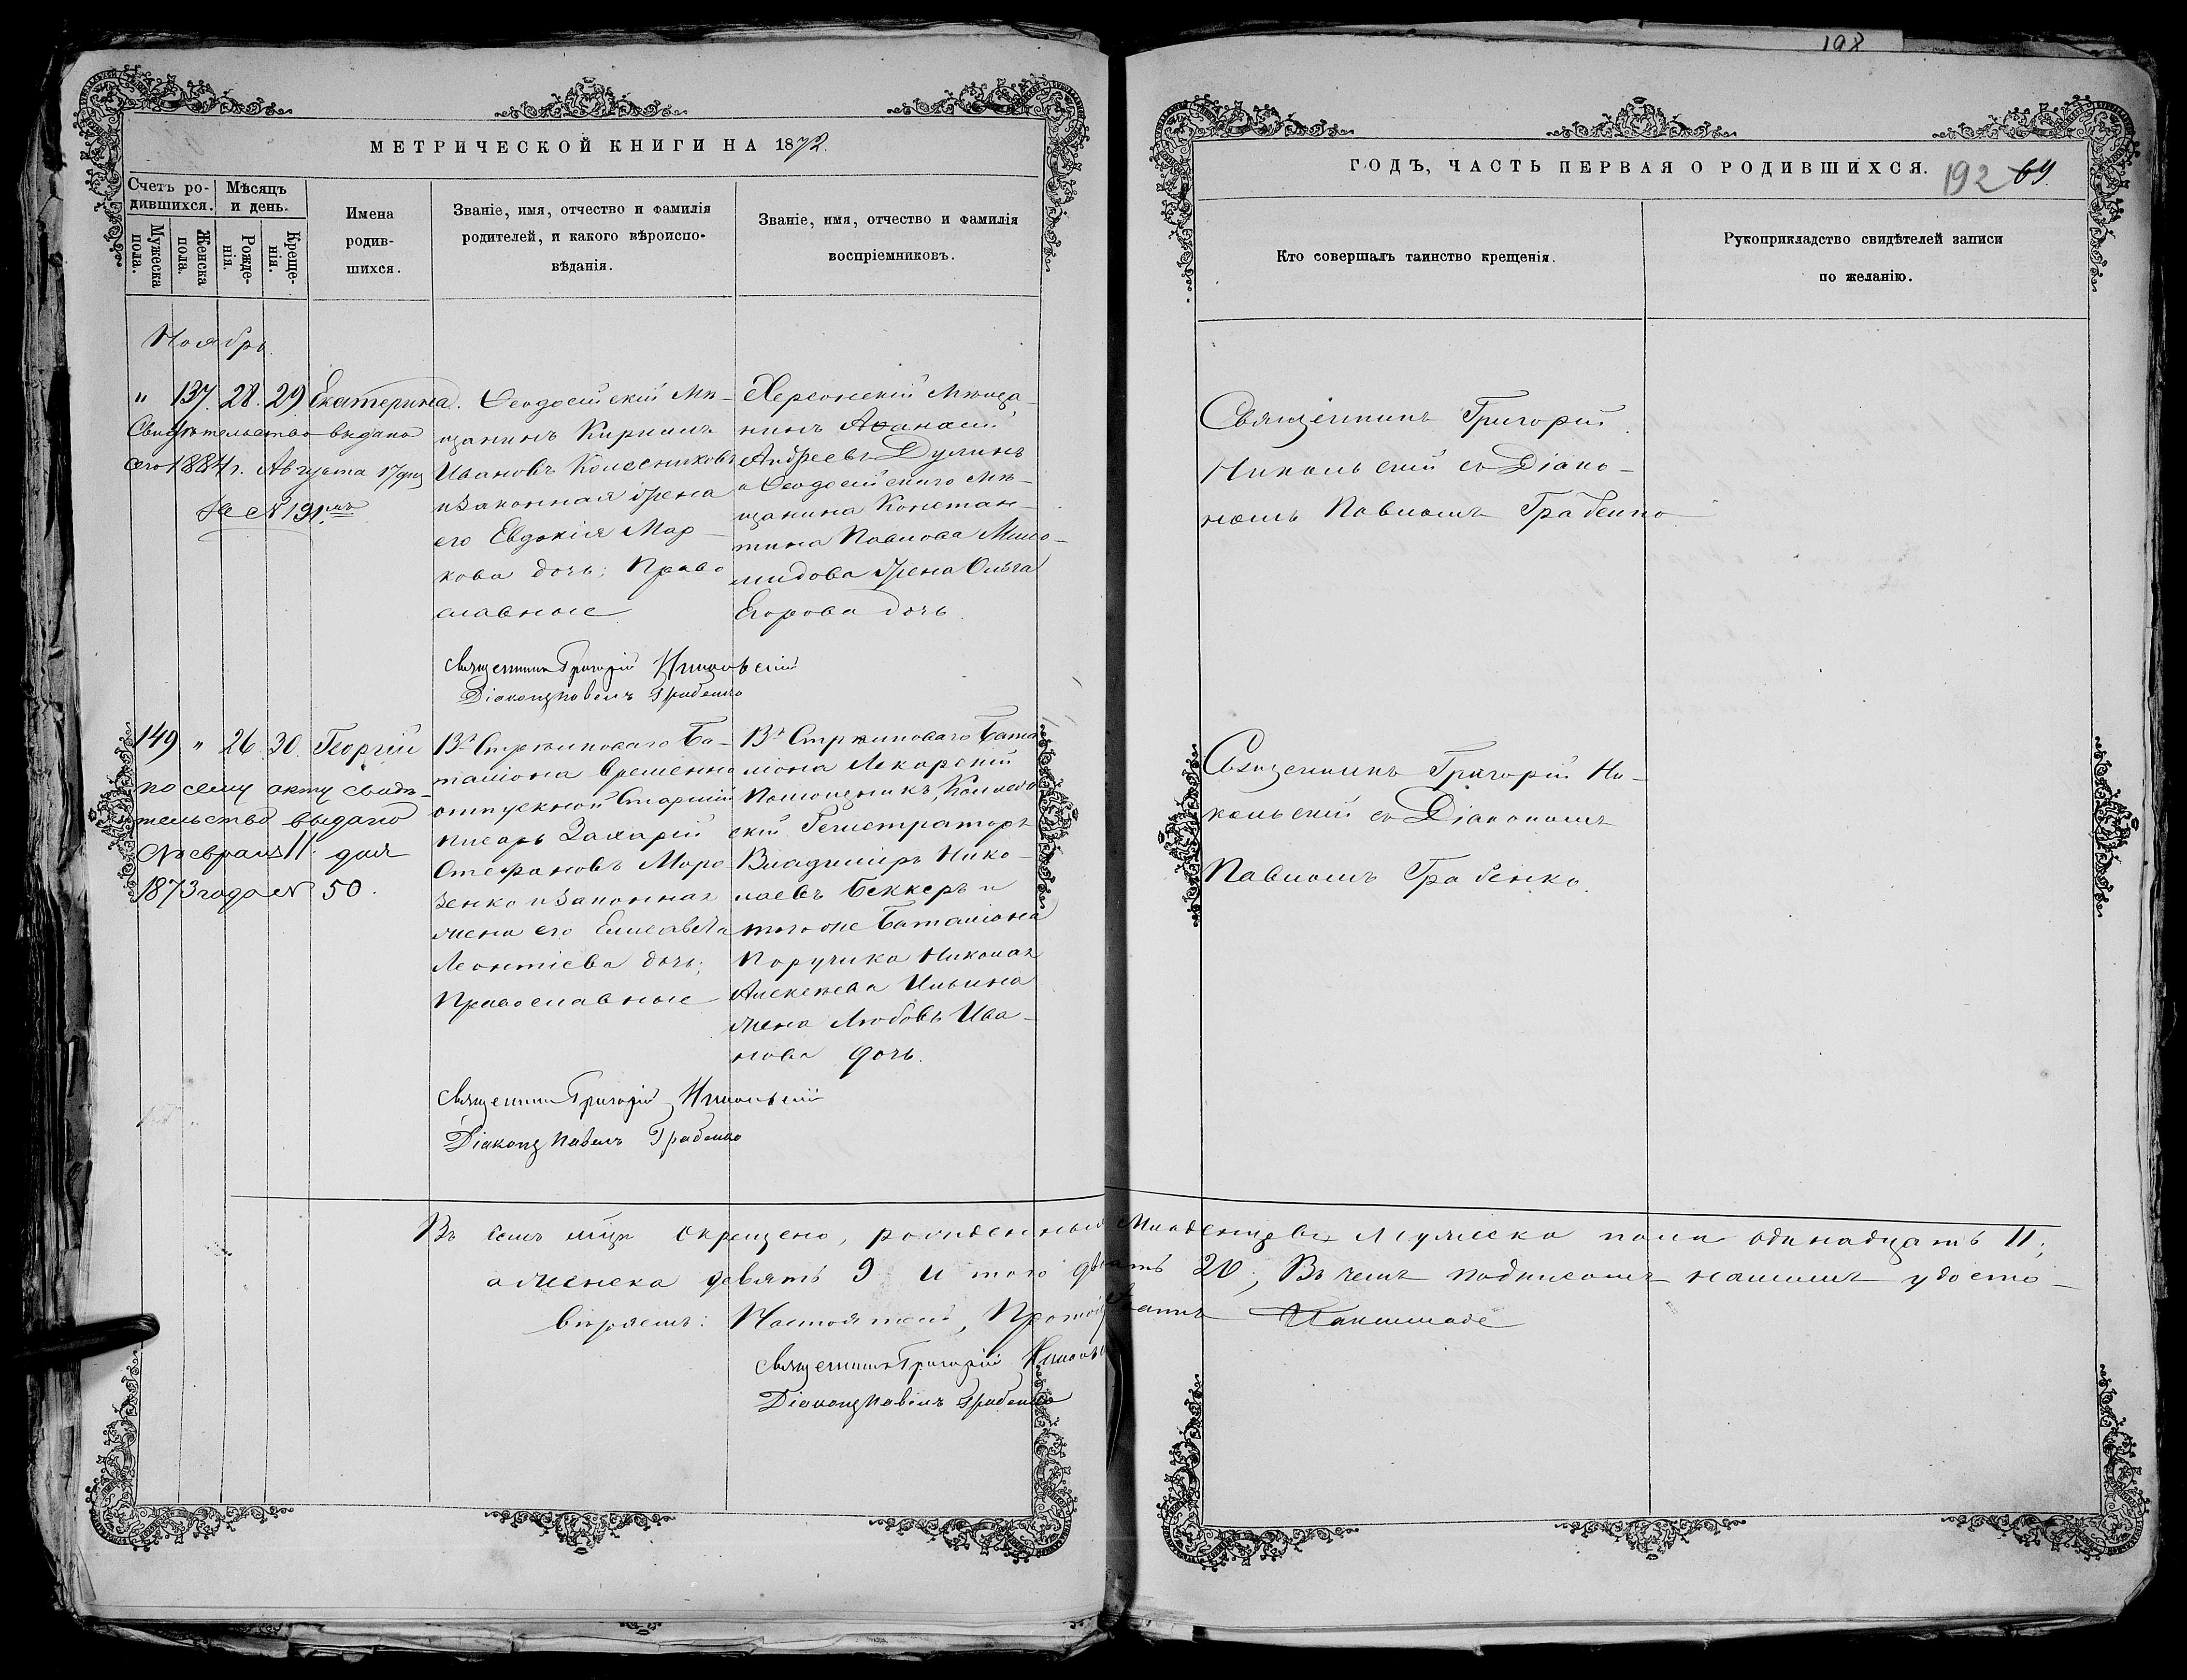 198
МЕТРИЧЕСКОЙ КНИГИ НА 1872.
Счетъ ро-
дившихся.
Мѣсяцъ
и день.
Мужеска
пола.
Женска
пола.
Рожде-
нія.
Креще-
нія.
Имена
родив-
шихся.
Званіе, имя, отчество и фамилія
родителей, и какого вѣроиспо-
вѣданія.
Званіе, имя, отчество и фамилія
воспріемниковъ.
Ноябрь.
" 137. 28. 29. Екатерина.
Свидѣтельство выдано
сего 1884 г. Августа 17 дня
за № 191.
Ѳеодосійскій Мѣ-
щанинъ Кириллъ
Ивановъ Колесниковъ
и законная жена
его Евдокія Мар-
кова дочь; Право
славные
Херсонскій Мѣща-
нинъ Аѳанасій
Андреевъ Дулинъ
и Ѳеодосійскаго Мѣ-
щанина Констан-
тина Павлова
жена Ольга
Егорова дочь.
Священникъ Григорій Никольскій
Діаконъ Павелъ Грабенко
149 " 26. 30. Георгій
по сему акту свидѣ-
тельство выдано
Февраля 11 дня
1873 года № 50.
13го Стрѣлковаго Ба-
таліона временно
отпускной Старшій
писарь Захарій
Стефановъ Моро
зенко и законная
жена его Елисавета
Леонтіева дочь;
Православные
13го Стрѣлковаго Бата
ліона Лекарскій
Помощникъ, Коллеж
скій Регистраторъ
Владиміръ Нико-
лаевъ Беккеръ и
того же Баталіона
Поручика Николая
Алексѣева Ильина
жена Любовь Ива-
нова дочь.
Священникъ Григорій Никольскій
Діаконъ Павелъ Грабенко
ГОДЪ, ЧАСТЬ ПЕРВАЯ О РОДИВШИХСЯ.
192 69.
Кто совершалъ таинство крещенія.
Рукоприкладство свидѣтелей записи
по желанію.
Священникъ Григорій
Никольскій съ Діако-
номъ Павломъ Грабенко
Священникъ Григорій Ни-
кольскій съ Діакономъ
Павломъ Грабенко.
Въ семъ м-цѣ окрещено, рожденныхъ Младенцевъ Мужеска пола одинадцать 11;
а женска девять 9 и того двадцать 20; Въ чемъ подписомъ нашимъ удосто-
вѣряемъ: Настоятель, Протоіерей
Священникъ Григорій Никольскій
Діаконъ Павелъ Грабенко